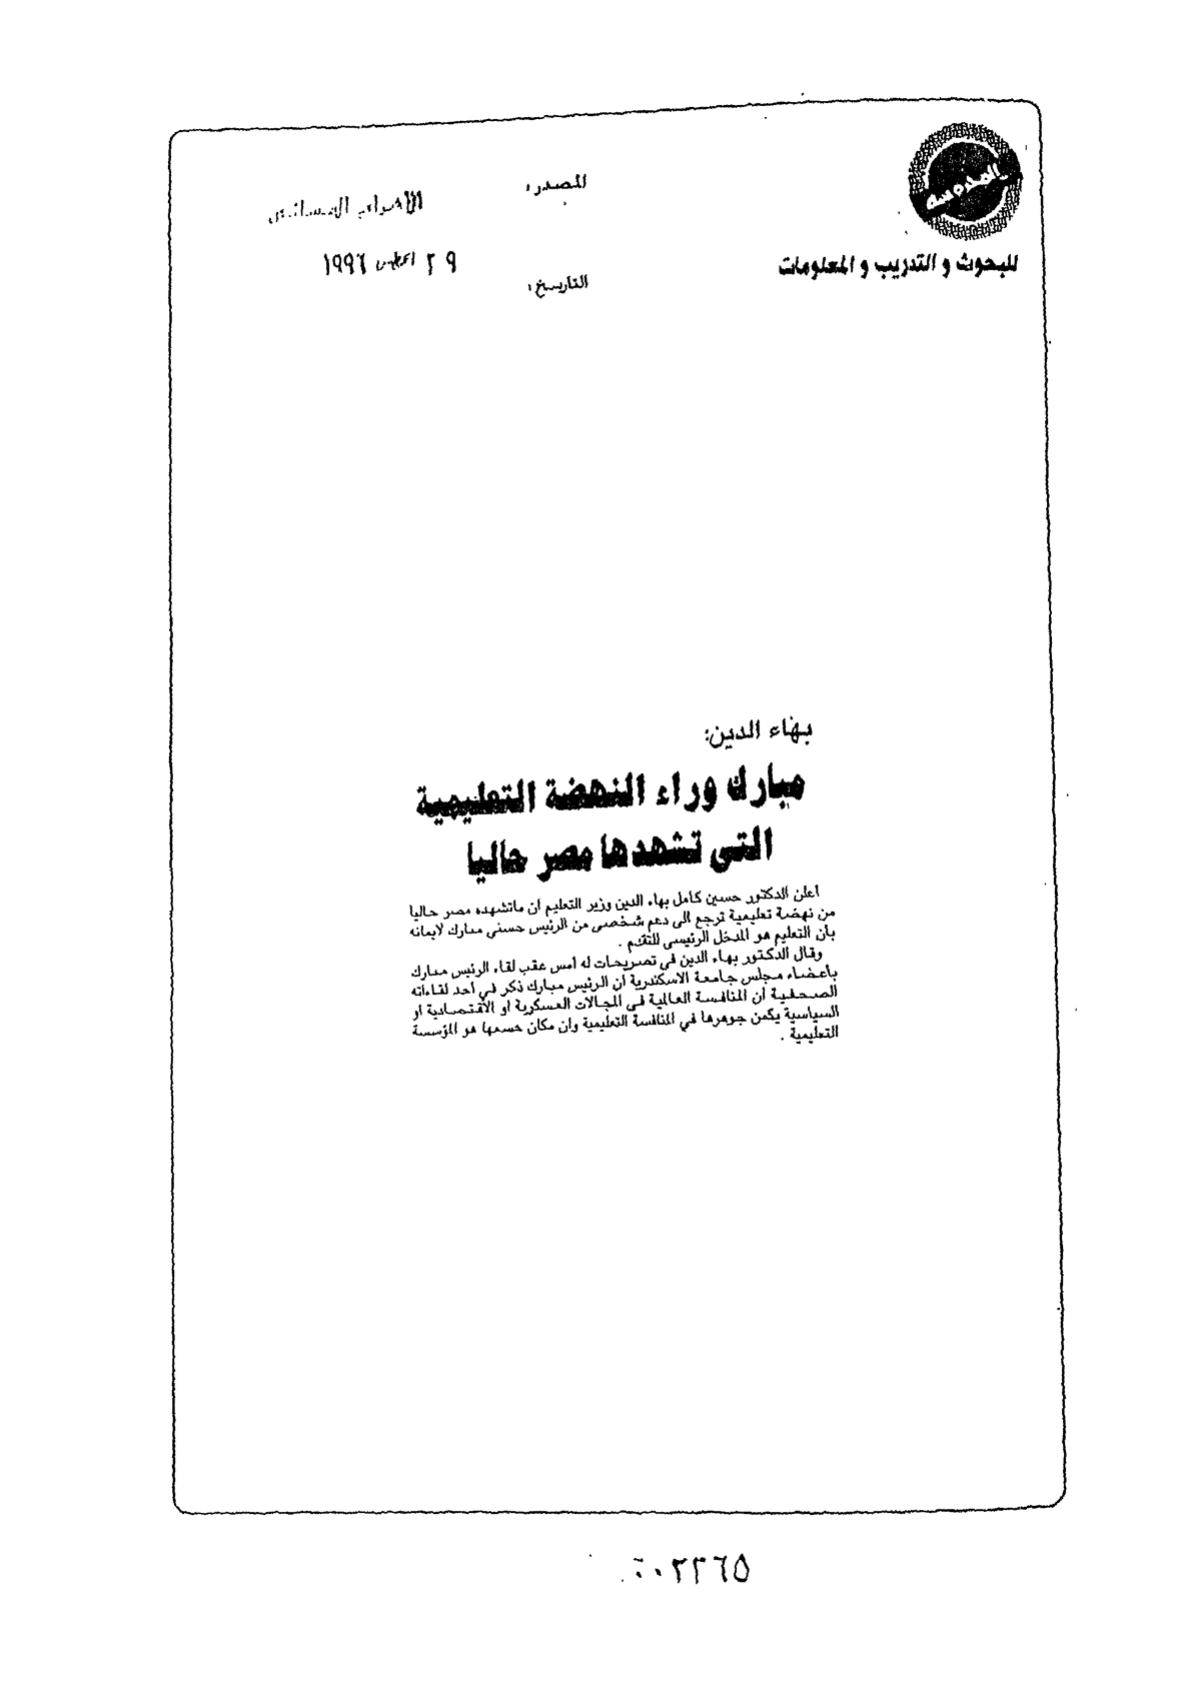 المدرسة
للبحوث و التدريب و المعلومات
المصدر :
الأهرام المسائى
التاريخ :
٢٩ اغسطس ١٩٩٦
بهاء الدين:
مبارك وراء النهضة التعليمية
التى تشهدها مصر حاليا
أعلن الدكتور حسين كامل بهاء الدين وزير التعليم ان ماتشهده مصر حاليا
من نهضة تعليمية ترجع الى دعم شخصى من الرئيس حسنى مبارك لايمانه
بأن التعليم هو المدخل الرئيسى للتقدم .
وقال الدكتور بهاء الدين فى تصريحات له أمس عقب لقاء الرئيس مبارك
بأعضاء مجلس جامعة الاسكندرية أن الرئيس مبارك ذكر في أحد لقاءاته
الصحفية أن المنافسة العالمية فى المجالات العسكرية او الاقتصادية او
السياسية يكمن جوهرها في المنافسة التعليمية وان مكان حسمها هو المؤسسة
التعليمية .